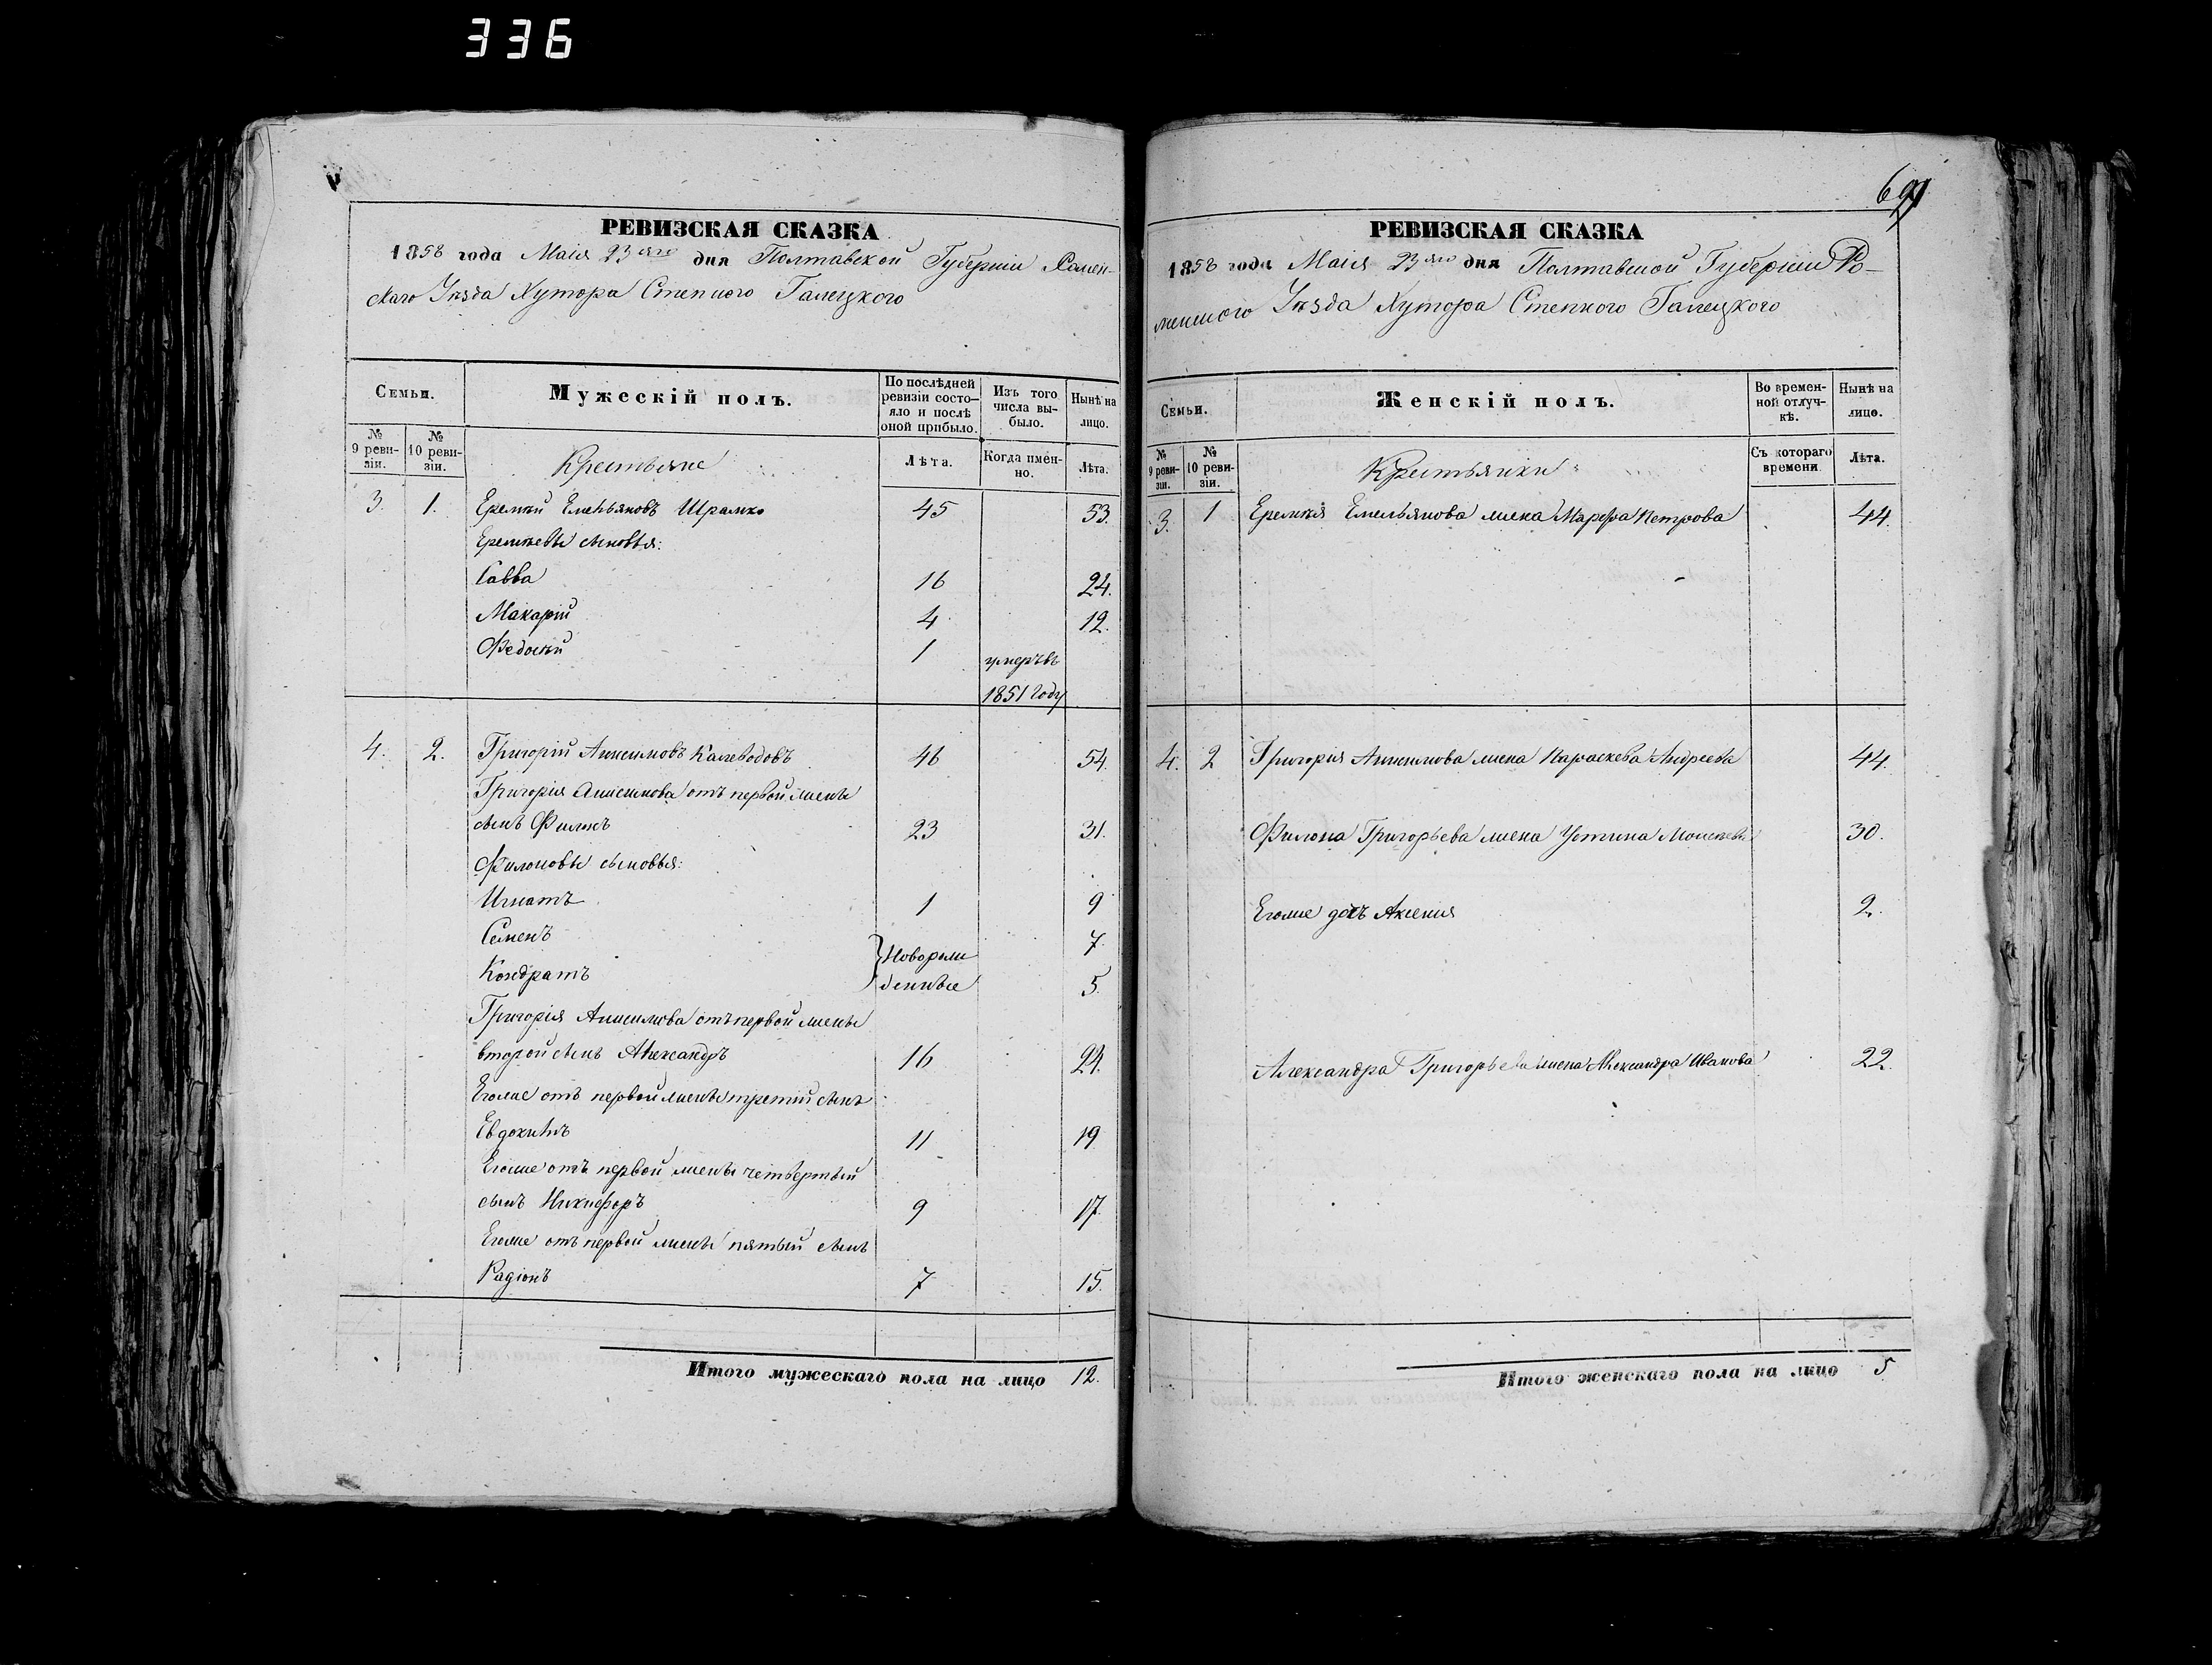 336
РЕВИЗСКАЯ СКАЗКА
1858 года Маія 23 дня Полтавской Губерніи Ромен-
скаго Уѣзда Хутора Степного Галецкого
Семьи.
Мужескій полъ.
По послѣдней ревизіи состояло и послѣ оной прибыло.
Изъ того числа выбыло.
Нынѣ на лицо.
№ 9 ревизіи.
№ 10 ревизіи.
Крестьяне
Лѣта.
Когда именно.
Лѣта.
3. 1. Еремѣй Емельяновъ Шрамко 45 53.
Еремѣевы сыновья:
Савва 16 24.
Макарій 4 12.
Федосѣй 1 умеръ въ
1851 Году
4. 2. Григорій Анисимовъ Калеводовъ 46 54.
Григорія Анисимова отъ первой жены
сынъ Филонъ 23 31.
Филоновы сыновья:
Игнатъ 1 9
Семенъ 7
Новорожденные
Кондратъ 5.
Григорія Анисимова отъ первой жены
второй сынъ Александръ 16 24.
Егоже отъ первой жены третій сынъ
Евдокимъ 11 19
Егоже отъ первой жены четвертый
сынъ Никифоръ 9 17.
Егоже отъ первой жены пятый сынъ
Радіонъ 7 15.
Итого мужескаго пола на лицо 12.
691
РЕВИЗСКАЯ СКАЗКА
1858 года Маія 23 дня Полтавской Губерніи Ро-
менского Уѣзда Хутора Степного Галецкого
Семьи.
Женскій полъ.
Во временной отлучкѣ.
Нынѣ на лицо.
№ 9 ревизіи.
№ 10 ревизіи.
Крестьянки
Съ котораго времени
Лѣта.
3. 1 Еремѣя Емельянова жена Марфа Петрова 44.
4. 2 Григорія Анисимова жена Параскева Андреева 44.
Филона Григорьева жена Устина Моисѣева 30.
Егоже дочь Аксенія 2.
Александра Григорьева жена Александра Иванова 22.
Итого женскаго пола на лицо 5